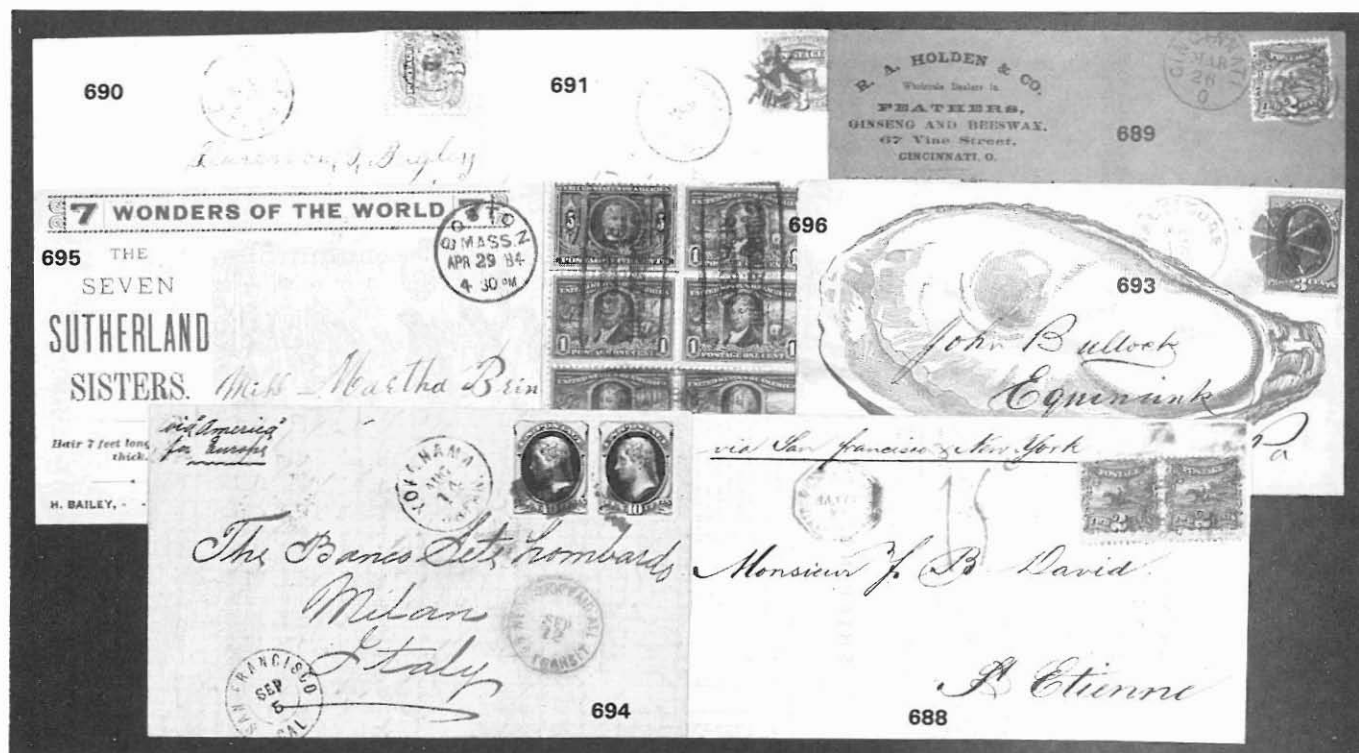 690
691
R. A. HOLDEN & CO.
Wholesale Dealers in
FEATHERS,
GINSENG AND BEESWAX,
67 Vine Street,
CINCINNATI, O.
CINCINNATI
MAR
26
O
689
7 WONDERS OF THE WORLD 7
695
THE
SEVEN
SUTHERLAND
SISTERS.
Hair 7 feet long
thick.
H. BAILEY, - -
BOSTON
MASS.
APR 29 84
4 30 PM
Miss Martha Brin
696
5
5
1
1
1
1
POSTAGE ONE CENT
693
3 CENTS
John Bullock
Equinunk
Pa
via America
for Europe
YOKOHAMA
AUG
14
10
The Banco Sete Lombardo
Milan
Italy
NEW YORK
SEP
12
TRANSIT
SAN FRANCISCO
SEP
5
CAL
694
via San francisco & New York
POSTAGE
POSTAGE
2
2
Monsieur J. B David
St Etienne
688